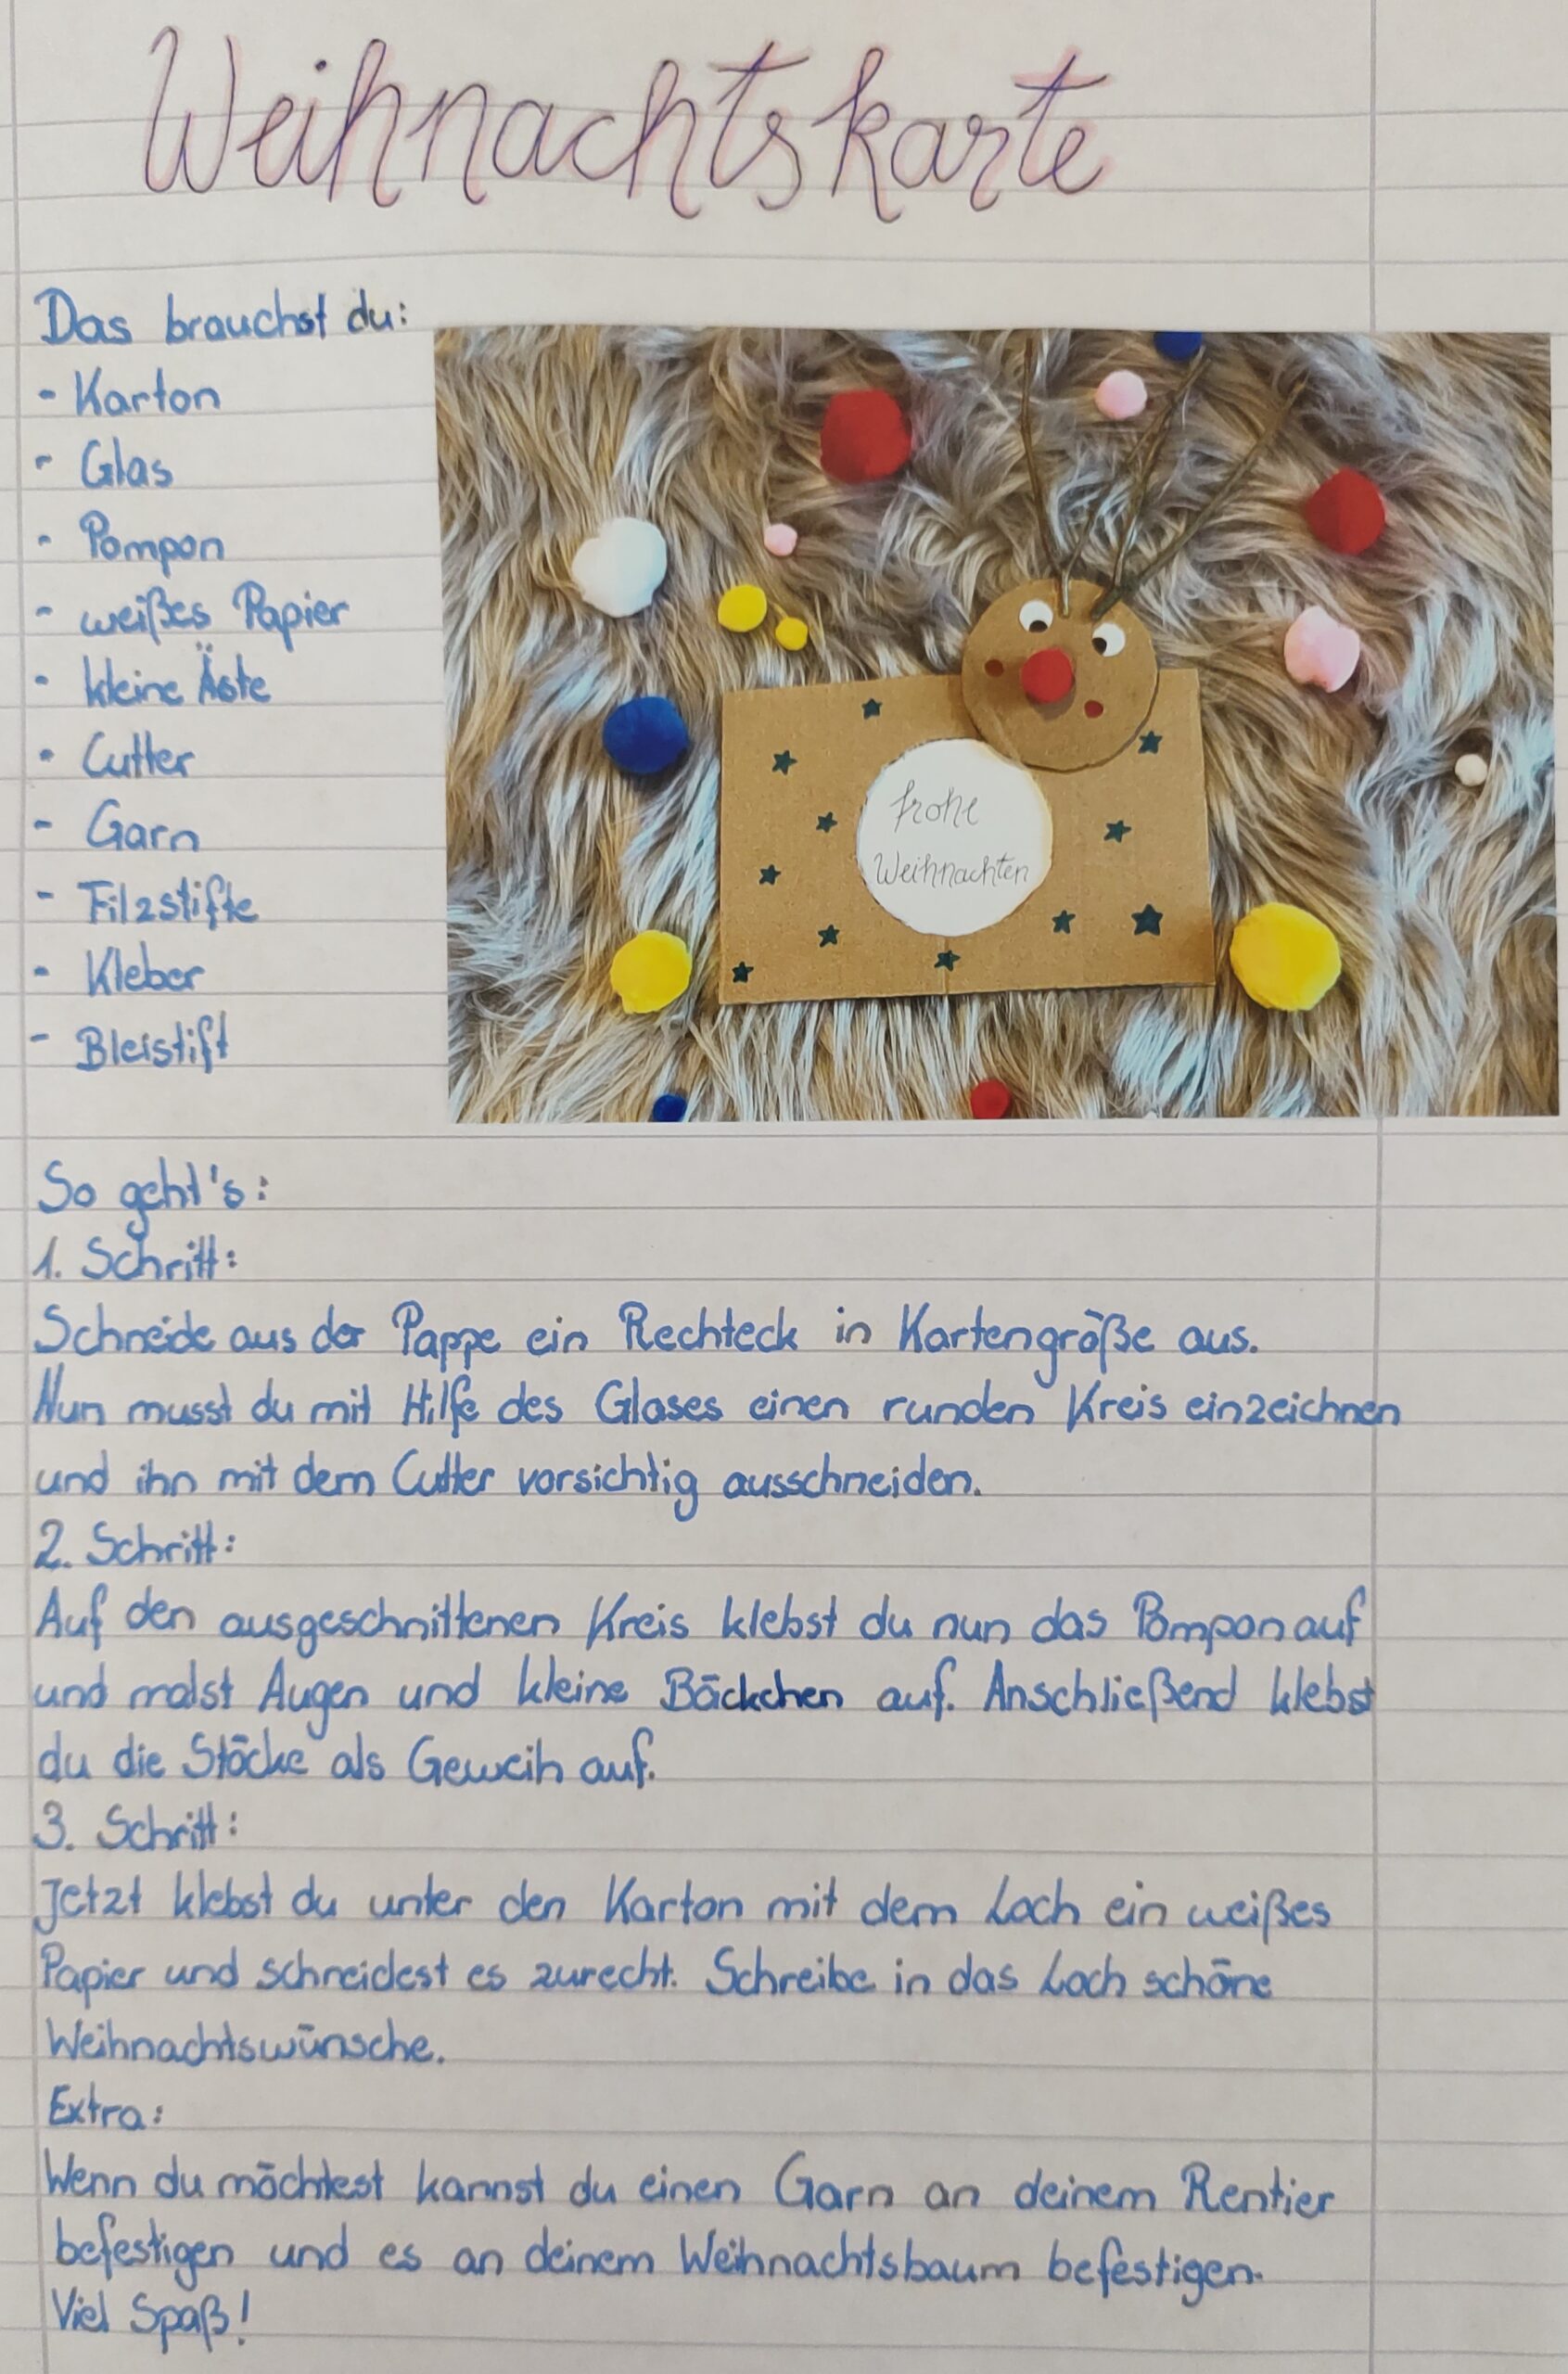 Weihnachtskarte
Das brauchst du:
- Karton
- Glas
- Pompon
- weißes Papier
- kleine Äste
- Cutter
- Garn
- Filzstifte
- Kleber
- Bleistift
frohe
Weihnachten
So geht's:
1. Schritt:
Schneide aus der Pappe ein Rechteck in Kartengröße aus.
Nun musst du mit Hilfe des Glases einen runden Kreis einzeichnen
und ihn mit dem Cutter vorsichtig ausschneiden.
2. Schritt:
Auf den ausgeschnittenen Kreis klebst du nun das Pompon auf
und malst Augen und kleine Bäckchen auf. Anschließend klebst
du die Stöcke als Geweih auf.
3. Schritt:
Jetzt klebst du unter den Karton mit dem Loch ein weißes
Papier und schneidest es zurecht. Schreibe in das Loch schöne
Weihnachtswünsche.
Extra:
Wenn du möchtest kannst du einen Garn an deinem Rentier
befestigen und es an deinem Weihnachtsbaum befestigen.
Viel Spaß!